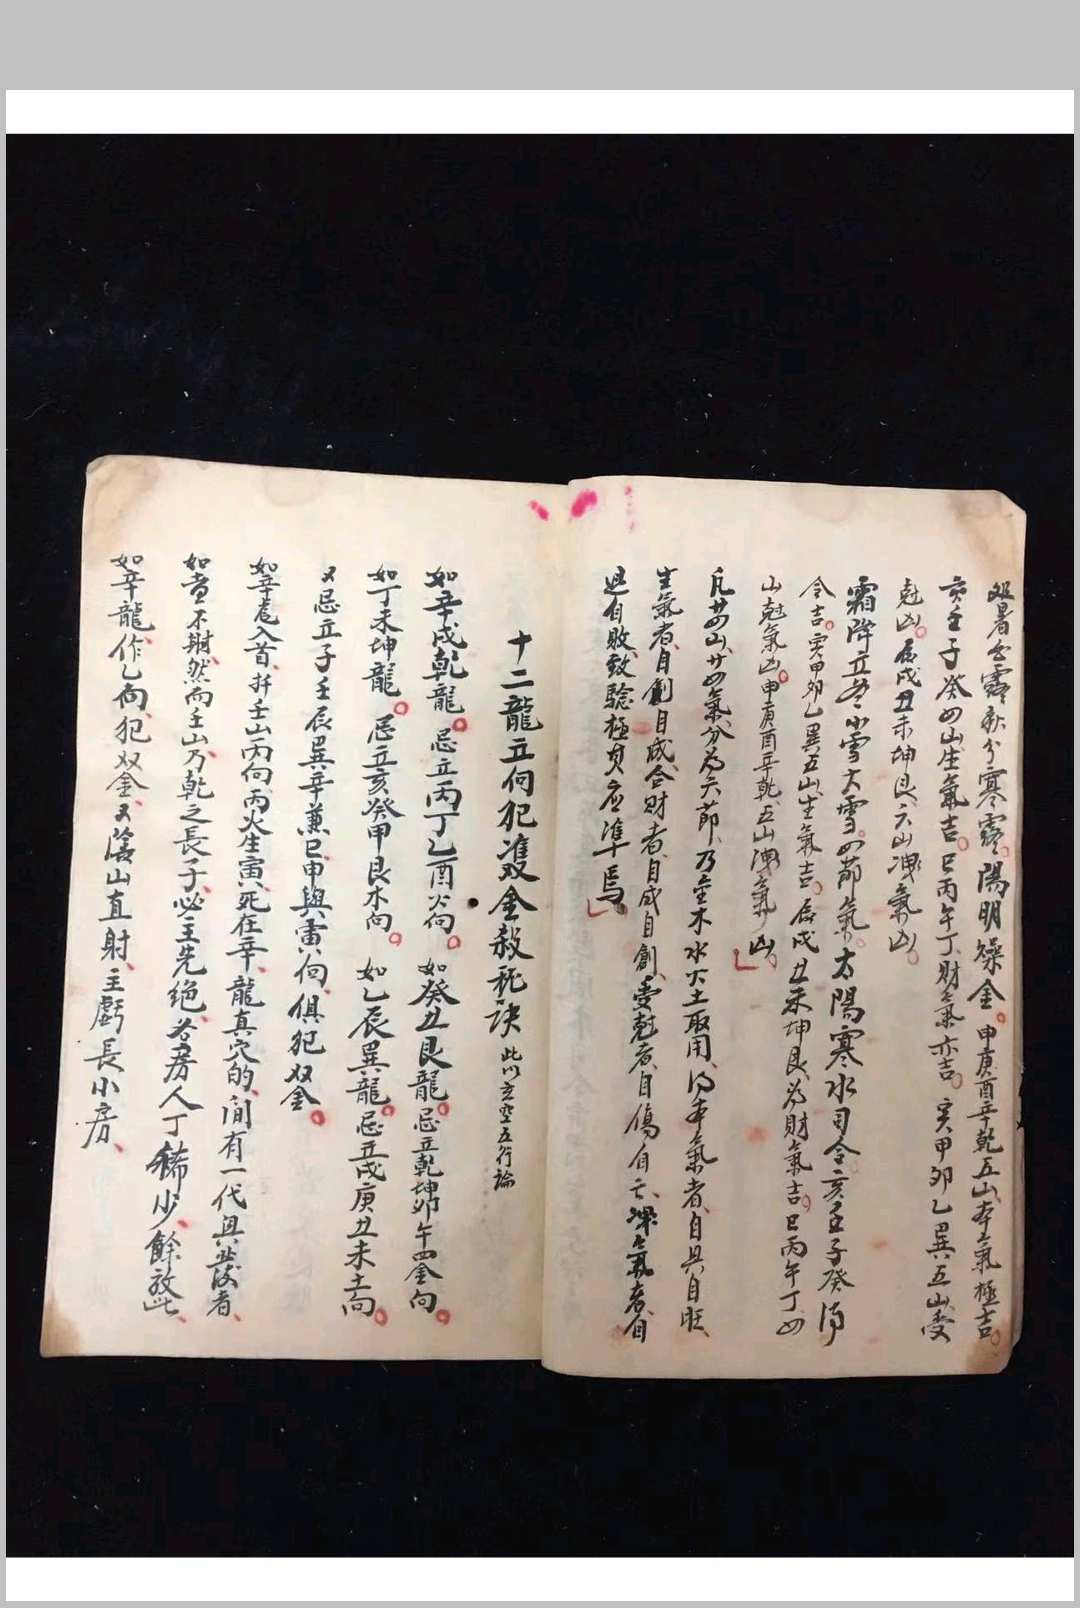 處暑白露秋分寒露。陽明燥金。申庚酉辛乾五山、本氣極吉。
亥壬子癸四山生氣吉。巳丙午丁、財氣亦吉。寅甲卯乙巽五山、受
尅凶。辰戌丑未坤艮、六山洩氣凶。
霜降立冬小雪大雪。四節氣。太陽寒水司令亥壬子癸得
令吉。寅甲卯乙巽五山、生氣吉。辰戌丑未坤艮、為財氣吉。巳丙午丁四
山尅氣凶。申庚酉辛乾、五山洩氣凶。
凡廿四山、廿四氣、分為六節、乃金木水火土取用、得本氣者、自具自旺、
生氣者、自創自成、合財者、自成自創、受尅者、自傷自亡、洩氣者、自
退自敗、致驗極其應準焉
十二龍立向犯雙金殺死訣 此以玄空五行論
如辛戌乾龍。忌立丙丁乙酉火向。如癸丑艮龍。忌立乾坤卯午四金向。
如丁未坤龍。忌立亥癸甲艮木向。如乙辰巽龍。忌立戌庚丑未土向。
又忌立子壬辰巽辛兼巳申與寅、向、俱犯双金。
如辛龍入首、扦壬山丙向、丙火生寅、死在辛、龍真穴的、間有一代與發者、
如貴不財、然而壬山、乃乾之長子、必主先絕、各房人丁稀少、餘放此、
如辛龍、作乙向、犯双金、又陰山直射、主虧長小房、